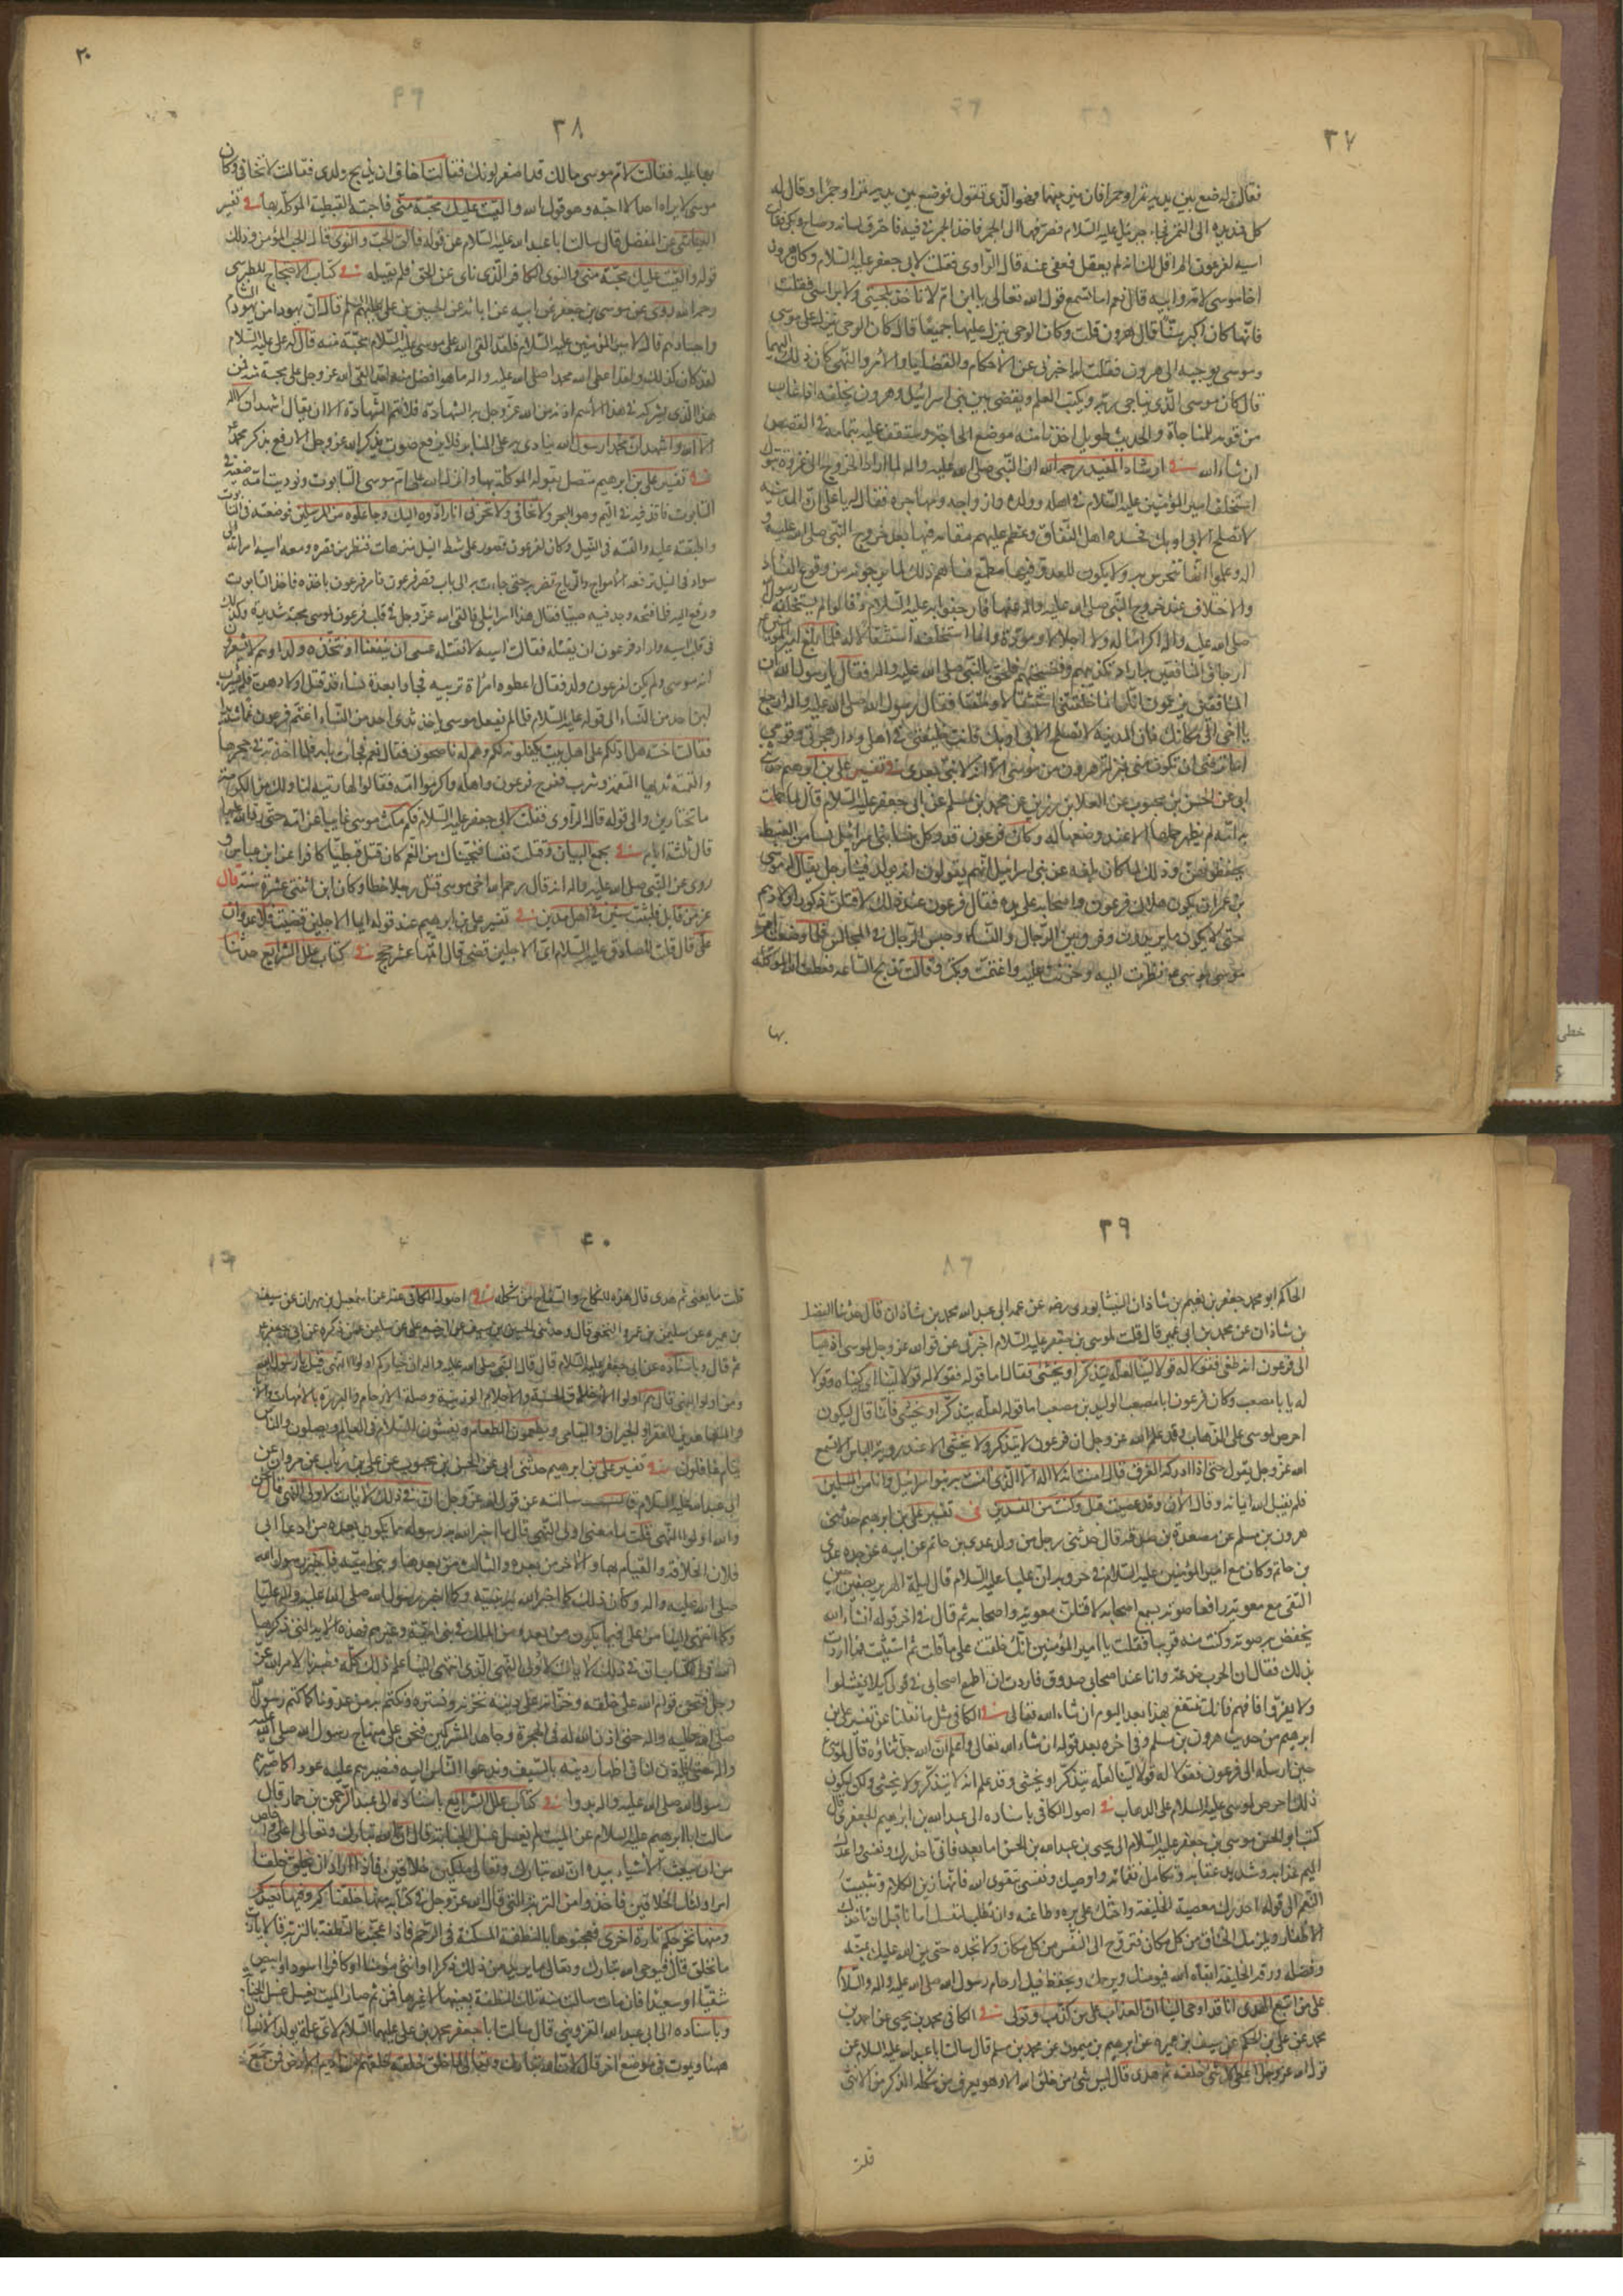 ٣٧
فقالت له ضع بين يديه تمرا وجمرا فان ميز بينهما فهو الذي تقول فوضع بين يديه تمرا وجمرا وقال له
كل فمد يده الى التمر فجاء جبرئيل عليه السلام فصرفها الى الجمر فاخذ الجمر في فيه فاحترق لسانه وصاح وبكى فقالت
آسية لفرعون الم اقل لك انه لم يعقل فعفى عنه قال الراوي فقلت لابي جعفر عليه السلام وكان هرون
اخا موسى لامه وابيه قال نعم اما تسمع قول الله تعالى يا ابن ام لا تأخذ بلحيتي ولا برأسي فقلت
فايهما كان اكبر سنا قال هرون قلت وكان الوحي ينزل عليهما جميعا قال كان الوحي ينزل على موسى
وموسى يوحيه الى هرون فقلت له اخبرني عن الاحكام والقضايا والامر والنهي كان ذلك اليهما
قال كان موسى الذي يناجي ربه ويكتب العلم ويقضي بين بني اسرائيل وهرون يخلفه اذا غاب
من قومه للمناجاة والحديث طويل اخذنا منه موضع الحاجة وستقف عليه بتمامه في القصص
ان شاء الله في ارشاد المفيد رحمه الله ان النبي صلى الله عليه واله لما اراد الخروج الى غزوة تبوك
استخلف امير المؤمنين عليه السلام في اهله وولده وازواجه ومهاجره فقال له يا علي ان المدينة
لا تصلح الا بي او بك فحسده اهل النفاق وعظم عليهم مقامه فيها بعد خروج النبي صلى الله عليه و
اله وعلموا انها تتحرس به ولا يكون للعدو فيها مطمع فساءهم ذلك لما يرجونه من وقوع الفساد
والاختلاف عند خروج النبي صلى الله عليه واله عنها فارجفوا به عليه السلام وقالوا لم يستخلفه رسول الله
صلى الله عليه واله اكراما له ولا اجلالا ومودة وانما استخلفه استثقالا له فلما بلغ امير المؤمنين
ارجاف المنافقين به اراد تكذيبهم وفضيحتهم فلحق بالنبي صلى الله عليه واله فقال يا رسول الله ان
المنافقين يزعمون انك انما خلفتني استثقالا ومقتا فقال رسول الله صلى الله عليه واله ارجع
يا اخي الى مكانك فان المدينة لا تصلح الا بي او بك فانت خليفتي في اهلي ودار هجرتي وقومي
اما ترضى ان تكون مني بمنزلة هرون من موسى الا انه لا نبي بعدي في تفسير علي بن ابرهيم حدثني
ابي عن الحسن بن محبوب عن العلا بن رزين عن محمد بن مسلم عن ابي جعفر عليه السلام قال لما حملت
به امه لم يظهر حملها الا عند وضعها له وكان فرعون قد وكل بنساء بني اسرائيل نساء من القبط
يحفظونهن وذلك لما كان بلغه عن بني اسرائيل انهم يقولون انه يولد فينا رجل يقال له موسى
بن عمران يكون هلاك فرعون واصحابه على يده فقال فرعون عند ذلك لاقتلن ذكور اولادهم
حتى لا يكون ما يريدون وفرق بين الرجال والنساء وحبس الرجال في المجالس فلما وضعت ام
موسى موسى عم نظرت اليه وحزنت عليه واغتمت وبكت وقالت تذبح الساعة فعطف الله الموكلة
بها
٢٠
٣٨
بها عليه فقالت لام موسى ما لك قد اصفر لونك فقالت اخاف ان يذبح ولدي فقالت لا تخافي وكان
موسى لا يراه احد الا احبه وهو قول الله والقيت عليك محبة مني فاحبته القبطية الموكلة بها في تفسير
العياشي عن المفضل قال سالت ابا عبد الله عليه السلام عن قوله فالق الحب والنوى قال الحب المؤمن وذلك
قوله والقيت عليك محبة مني والنوى الكافر الذي ناى عن الحق فلم يقبله في كتاب الاحتجاج للطبرسي
رحمه الله روى عن موسى بن جعفر عن ابيه عن ابائه عن الحسين بن علي عليهم السلم قال ان يهوديا من يهود الشام
واحبارهم قال لامير المؤمنين عليه السلام فلقد القى الله على موسى عليه السلام محبة منه قال له علي عليه السلام
لقد كان كذلك ولقد اعطى الله محمدا صلى الله عليه واله ما هو افضل منه لقد القى الله عز وجل عليه محبة منه فمن
هذا الذي يشركه في هذا الاسم اذ تم من الله عز وجل به الشهادة فلا تتم الشهادة الا ان يقال اشهد ان لا اله
الا الله واشهد ان محمدا رسول الله ينادى به على المنابر فلا يرفع صوت بذكر الله عز وجل الا رفع بذكر محمد
في تفسير علي بن ابرهيم متصل بقوله الموكلة بها وانزل الله على ام موسى التابوت ونوديت امه ضعيه في
التابوت فاقذفيه في اليم وهو البحر ولا تخافي ولا تحزني انا رادوه اليك وجاعلوه من المرسلين فوضعته في التابوت
واطبقته عليه والقته في النيل وكان لفرعون قصور على شط النيل متنزهات فنظر من قصره ومعه اسية امراته الى
سواد في النيل ترفعه الامواج والرياح تضربه حتى جاءت به الى باب قصر فرعون فامر فرعون باخذه فاخذ التابوت
ورفع اليه فلما فتحه وجد فيه صبيا فقال هذا اسرائيلي فالقى الله عز وجل في قلب فرعون لموسى محبة شديدة وكذلك
في قلب اسية واراد فرعون ان يقتله فقالت اسية لا تقتله عسى ان ينفعنا او نتخذه ولدا وهم لا يشعرون
انه موسى ولم يكن لفرعون ولد فقال اعطوه امراة تربيه فجاءوا بعدة نساء قد قتل اولادهن فلم يشرب
لبن احد من النساء الى قوله عليه السلام فلما لم يقبل موسى ياخذ ثدي احد من النساء اغتم فرعون غما شديدا
فقالت اخته هل ادلكم على اهل بيت يكفلونه لكم وهم له ناصحون فقال نعم فجاءت بامه فلما اخذته في حجرها
والقمته ثديها التقمه وشرب ففرح فرعون واهله واكرموا امه فقالوا لها ربيه لنا ولك من الكرامة منا
ما تختارين والى قوله قال الراوي فقلت لابي جعفر عليه السلام فكم مكث موسى غائبا عن امه حتى رده الله عليها
قال ثلثة ايام في مجمع البيان وقتلت نفسا فنجيناك من الغم كان قتل قبطيا كافرا عن ابن عباس و
روى عن النبي صلى الله عليه واله انه قال رحم الله اخي موسى قتل رجلا خطا وكان ابن اثنتي عشرة سنة قال
عز من قائل فلبثت سنين في اهل مدين في تفسير علي بن ابرهيم عند قوله ايما الاجلين قضيت فلا عدوان
علي قال قلت للصادق عليه السلام اي الاجلين قضى قال اتمها عشر حجج في كتاب علل الشرايع حدثنا
٣٩
الحاكم ابو محمد جعفر بن نعيم بن شاذان النيشابوري رضه عن عمه ابي عبد الله محمد بن شاذان قال حدثنا الفضل
بن شاذان عن محمد بن ابي عمير قال قلت لموسى بن جعفر عليه السلام اخبرني عن قول الله عز وجل لموسى اذهبا
الى فرعون انه طغى فقولا له قولا لينا لعله يتذكر او يخشى فقال اما قوله فقولا له قولا لينا اي كنياه وقولا
له يا با مصعب وكان فرعون ابا مصعب الوليد بن مصعب اما قوله لعله يتذكر او يخشى فانما قال ليكون
احرص لموسى على الذهاب وقد علم الله عز وجل ان فرعون لا يتذكر ولا يخشى الا عند رؤية الباس الا تسمع
الله عز وجل يقول حتى اذا ادركه الغرق قال امنت انه لا اله الا الذي امنت به بنوا اسرائيل وانا من المسلمين
فلم يقبل الله ايمانه وقال الآن وقد عصيت قبل وكنت من المفسدين في تفسير علي بن ابرهيم حدثني
هرون بن مسلم عن مسعدة بن صدقة قال حدثني رجل من ولد عدي بن حاتم عن ابيه عن جده عدي
بن حاتم وكان مع امير المؤمنين عليه السلام في حروبه ان عليا عليه السلام قال ليلة الهرير بصفين حين
التقى مع معوية رافعا صوته يسمع اصحابه لاقتلن معوية واصحابه ثم قال في اخر قوله انشاء الله
يخفض به صوته وكنت منه قريبا فقلت يا امير المؤمنين انك حلفت على ما قلت ثم استثنيت فما اردت
بذلك فقال ان الحرب خدعة وانا عند اصحابي صدوق فاردت ان اطمع اصحابي في قولي كيلا يفشلوا
ولا يفروا فافهم فانك تنتفع بهذا بعد اليوم ان شاء الله تعالى في الكافي مثل ما نقلنا عن تفسير علي بن
ابرهيم من حديث هرون بن مسلم وفي اخره بعد قوله ان شاء الله تعالى واعلم ان الله جل ثناؤه قال لموسى
حين ارسله الى فرعون فقولا له قولا لينا لعله يتذكر او يخشى وقد علم انه لا يتذكر ولا يخشى ولكن ليكون
ذلك احرص لموسى عليه السلام على الذهاب في اصول الكافي باسناده الى عبد الله بن ابرهيم الجعفري قال
كتب ابو الحسن موسى بن جعفر عليه السلام الى يحيى بن عبد الله بن الحسن اما بعد فاني احذرك ونفسي واعلمك
اليم عذابه وشديد عقابه وتكامل نقماته واوصيك ونفسي بتقوى الله فانها زين الكلام وتثبيت
النعم الى قوله احذرك معصية الخليفة واحثك على بره وطاعته وان تطلب لنفسك امانا قبل ان تاخذك
الاظفار ويلزمك الخناق من كل مكان فتروح الى النفس من كل مكان ولا تجده حتى يمن الله عليك بمنه
وفضله ورقة الخليفة ابقاه الله فيومنك ويرحمك ويحفظ فيك ارحام رسول الله صلى الله عليه واله والسلام
على من اتبع الهدى انا قد اوحي الينا ان العذاب على من كذب وتولى في الكافي محمد بن يحيى عن احمد بن
محمد عن علي بن الحكم عن سيف بن عميرة عن ابرهيم بن ميمون عن محمد بن مسلم قال سالت ابا عبد الله عليه السلام عن
قول الله عز وجل اعطى كل شيء خلقه ثم هدى قال ليس شيء من خلق الله الا وهو يعرف من شكله الذكر من الانثى
قلت
٤٠
قلت ما يعني ثم هدى قال هداه للنكاح والسفاح من شكله في اصول الكافي عنه عن اسمعيل بن مهران عن سيف
بن عميرة عن سليمن بن عمرو النخعي قال وحدثني الحسين بن سيف عن اخيه علي عن سليمن عمن ذكره عن ابي جعفر
ثم قال وباسناده عن ابي جعفر عليه السلام قال قال النبي صلى الله عليه واله ان خياركم اولوا النهى قيل يا رسول الله
ومن اولوا النهى قال هم اولوا الاخلاق الحسنة والاحلام الرزينة وصلة الارحام والبررة بالامهات والآباء
والمتعاهدين للفقراء والجيران واليتامى ويطعمون الطعام ويفشون السلام في العالم ويصلون والناس
نيام غافلون في تفسير علي بن ابرهيم حدثني ابي عن الحسن بن محبوب عن علي بن رئاب عن مروان عن
ابي عبد الله عليه السلام قال سالته عن قول الله عز وجل ان في ذلك لآيات لاولي النهى قال نحن
والله اولوا النهى قلت ما معنى اولي النهى قال ما اخبر الله به رسوله مما يكون بعده من ادعاء ابي
فلان الخلافة والقيام بها والآخر من بعده والثالث من بعدهما وبني امية فاخبر رسول الله
صلى الله عليه واله وكان ذلك كما اخبر الله به نبيه وكما اخبر رسول الله صلى الله عليه واله عليا
وكما انتهى الينا من علي فيما يكون من بعده من الملك في بني امية وغيرهم فهذه الآية التي ذكرها
الله في الكتاب ان في ذلك لآيات لاولي النهى الذي انتهى الينا علم ذلك كله فصبرنا لامر الله عز
وجل فنحن قوام الله على خلقه وخزانه على دينه نخزنه ونستره ونكتتم به من عدونا كما كتم رسول الله
صلى الله عليه واله حتى اذن الله له في الهجرة وجاهد المشركين فنحن على منهاج رسول الله صلى الله عليه
واله حتى ياذن لنا في اظهار دينه بالسيف وندعوا الناس اليه فنضربهم عليه عودا كما ضربهم
رسول الله صلى الله عليه واله بدوا في كتاب علل الشرايع باسناده الى عبد الرحمن بن حماد قال
سالت ابا ابرهيم عليه السلام عن الميت لم يغسل غسل الجنابة قال ان الله تبارك وتعالى اعلى واخلص
من ان يبعث الاشياء بيده ان لله تبارك وتعالى ملكين خلاقين فاذا اراد ان يخلق خلقا
امر اولئك الخلاقين فاخذوا من التربة التي قال الله عز وجل في كتابه منها خلقناكم وفيها نعيدكم
ومنها نخرجكم تارة اخرى فعجنوها بالنطفة المسكنة في الرحم فاذا عجنت النطفة بالتربة قالا يا رب
ما نخلق قال فيوحي الله تبارك وتعالى ما يريد من ذلك ذكرا او انثى مؤمنا او كافرا اسود او ابيض
شقيا او سعيدا فان مات سالت منه تلك النطفة بعينها لا غيرها فمن ثم صار الميت يغسل غسل الجنابة
وباسناده الى ابي عبد الله القزويني قال سالت ابا جعفر محمد بن علي عليهما السلام لاي علة يولد الانسان
ههنا ويموت في موضع اخر قال لان الله تبارك وتعالى لما خلق خلقه خلقهم من اديم الارض فمرجع